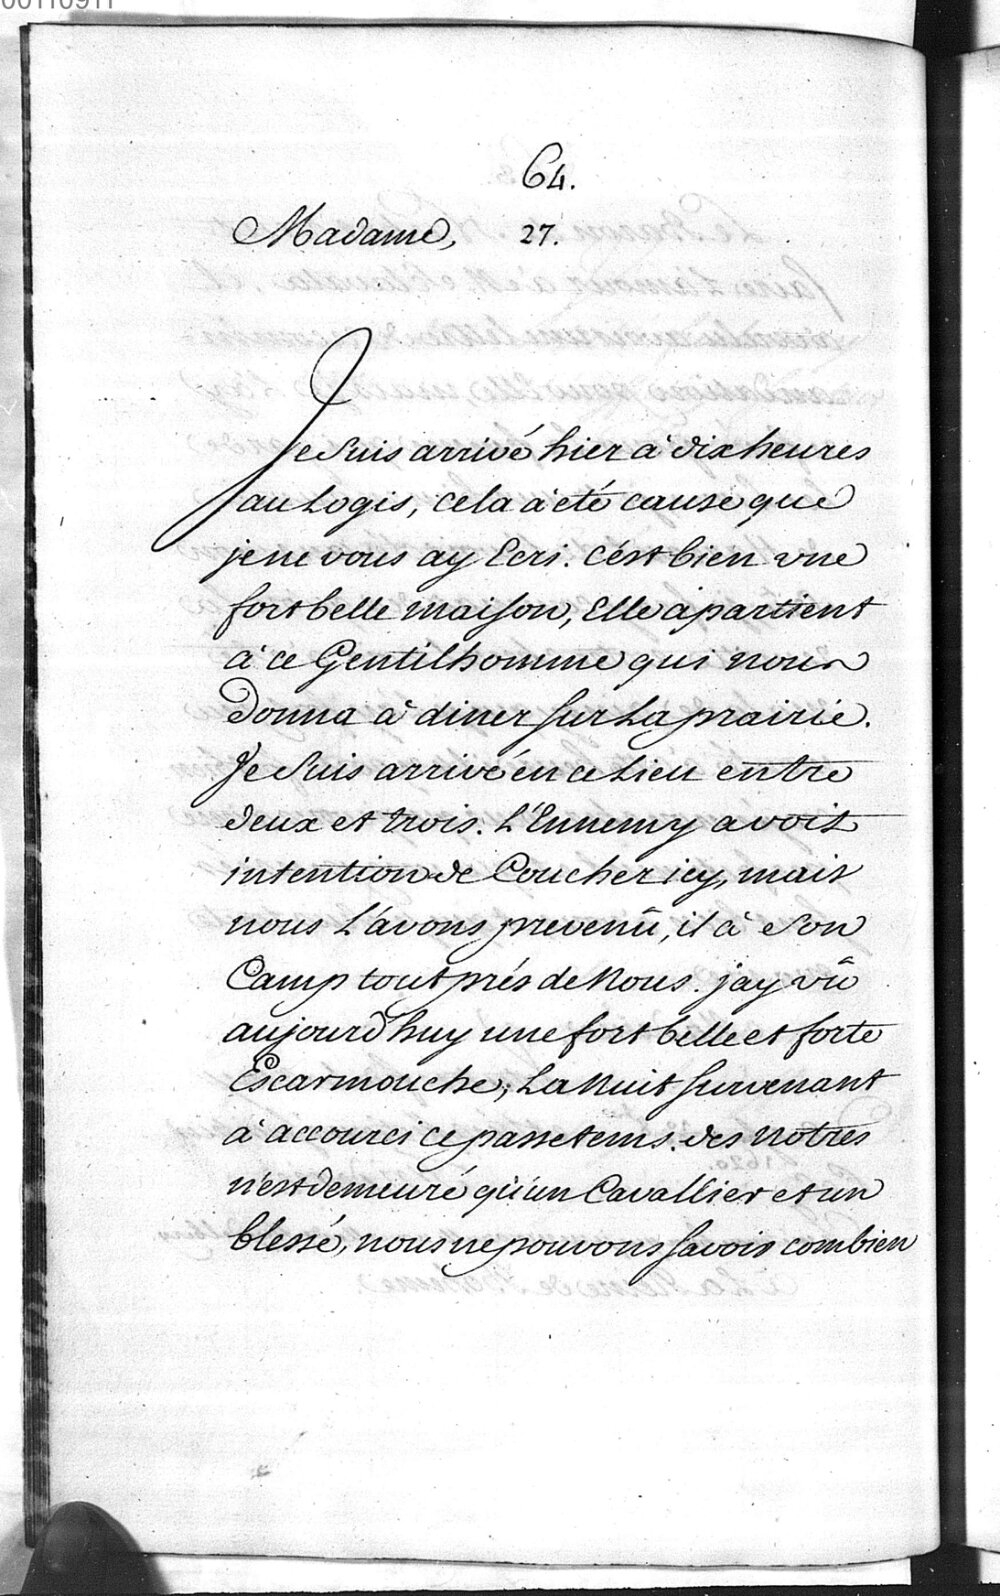 00110911
64.
Madame, 27.
Je Suis arrivé hier à dix heures
au Logis, cela à eté cause que
je ne vous ay Ecri. c'est bien vne
fort belle maison, Elle apartient
à ce Gentilhomme qui nous
Donna à diner sur La prairie.
Je Suis arrivé en ce Lieu entre
deux et trois. L'Ennemy avoit
intention de Coucher icy, mais
nous L'avons prevenû, il à Son
Camp tout prés de Nous. jay vû
aujourd'huy une fort belle et forte
Escarmouche, La Nuit survenant
à accourci ce passetems. des Notres
n'est demeuré qu'un Cavallier et un
blessé, nous ne pouvons savoir combien